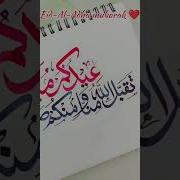 Eid-Al-Adha mubarak ❤️
عيدكم
تقبل الله منا ومنكم